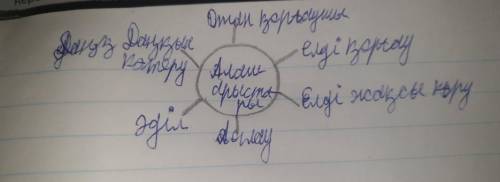 Отан қорғаушы
Даңқын
көтеру
Елді қорғау
Алаш
арыста-
ры
Елді жақсы көру
Әділ
Ақтау